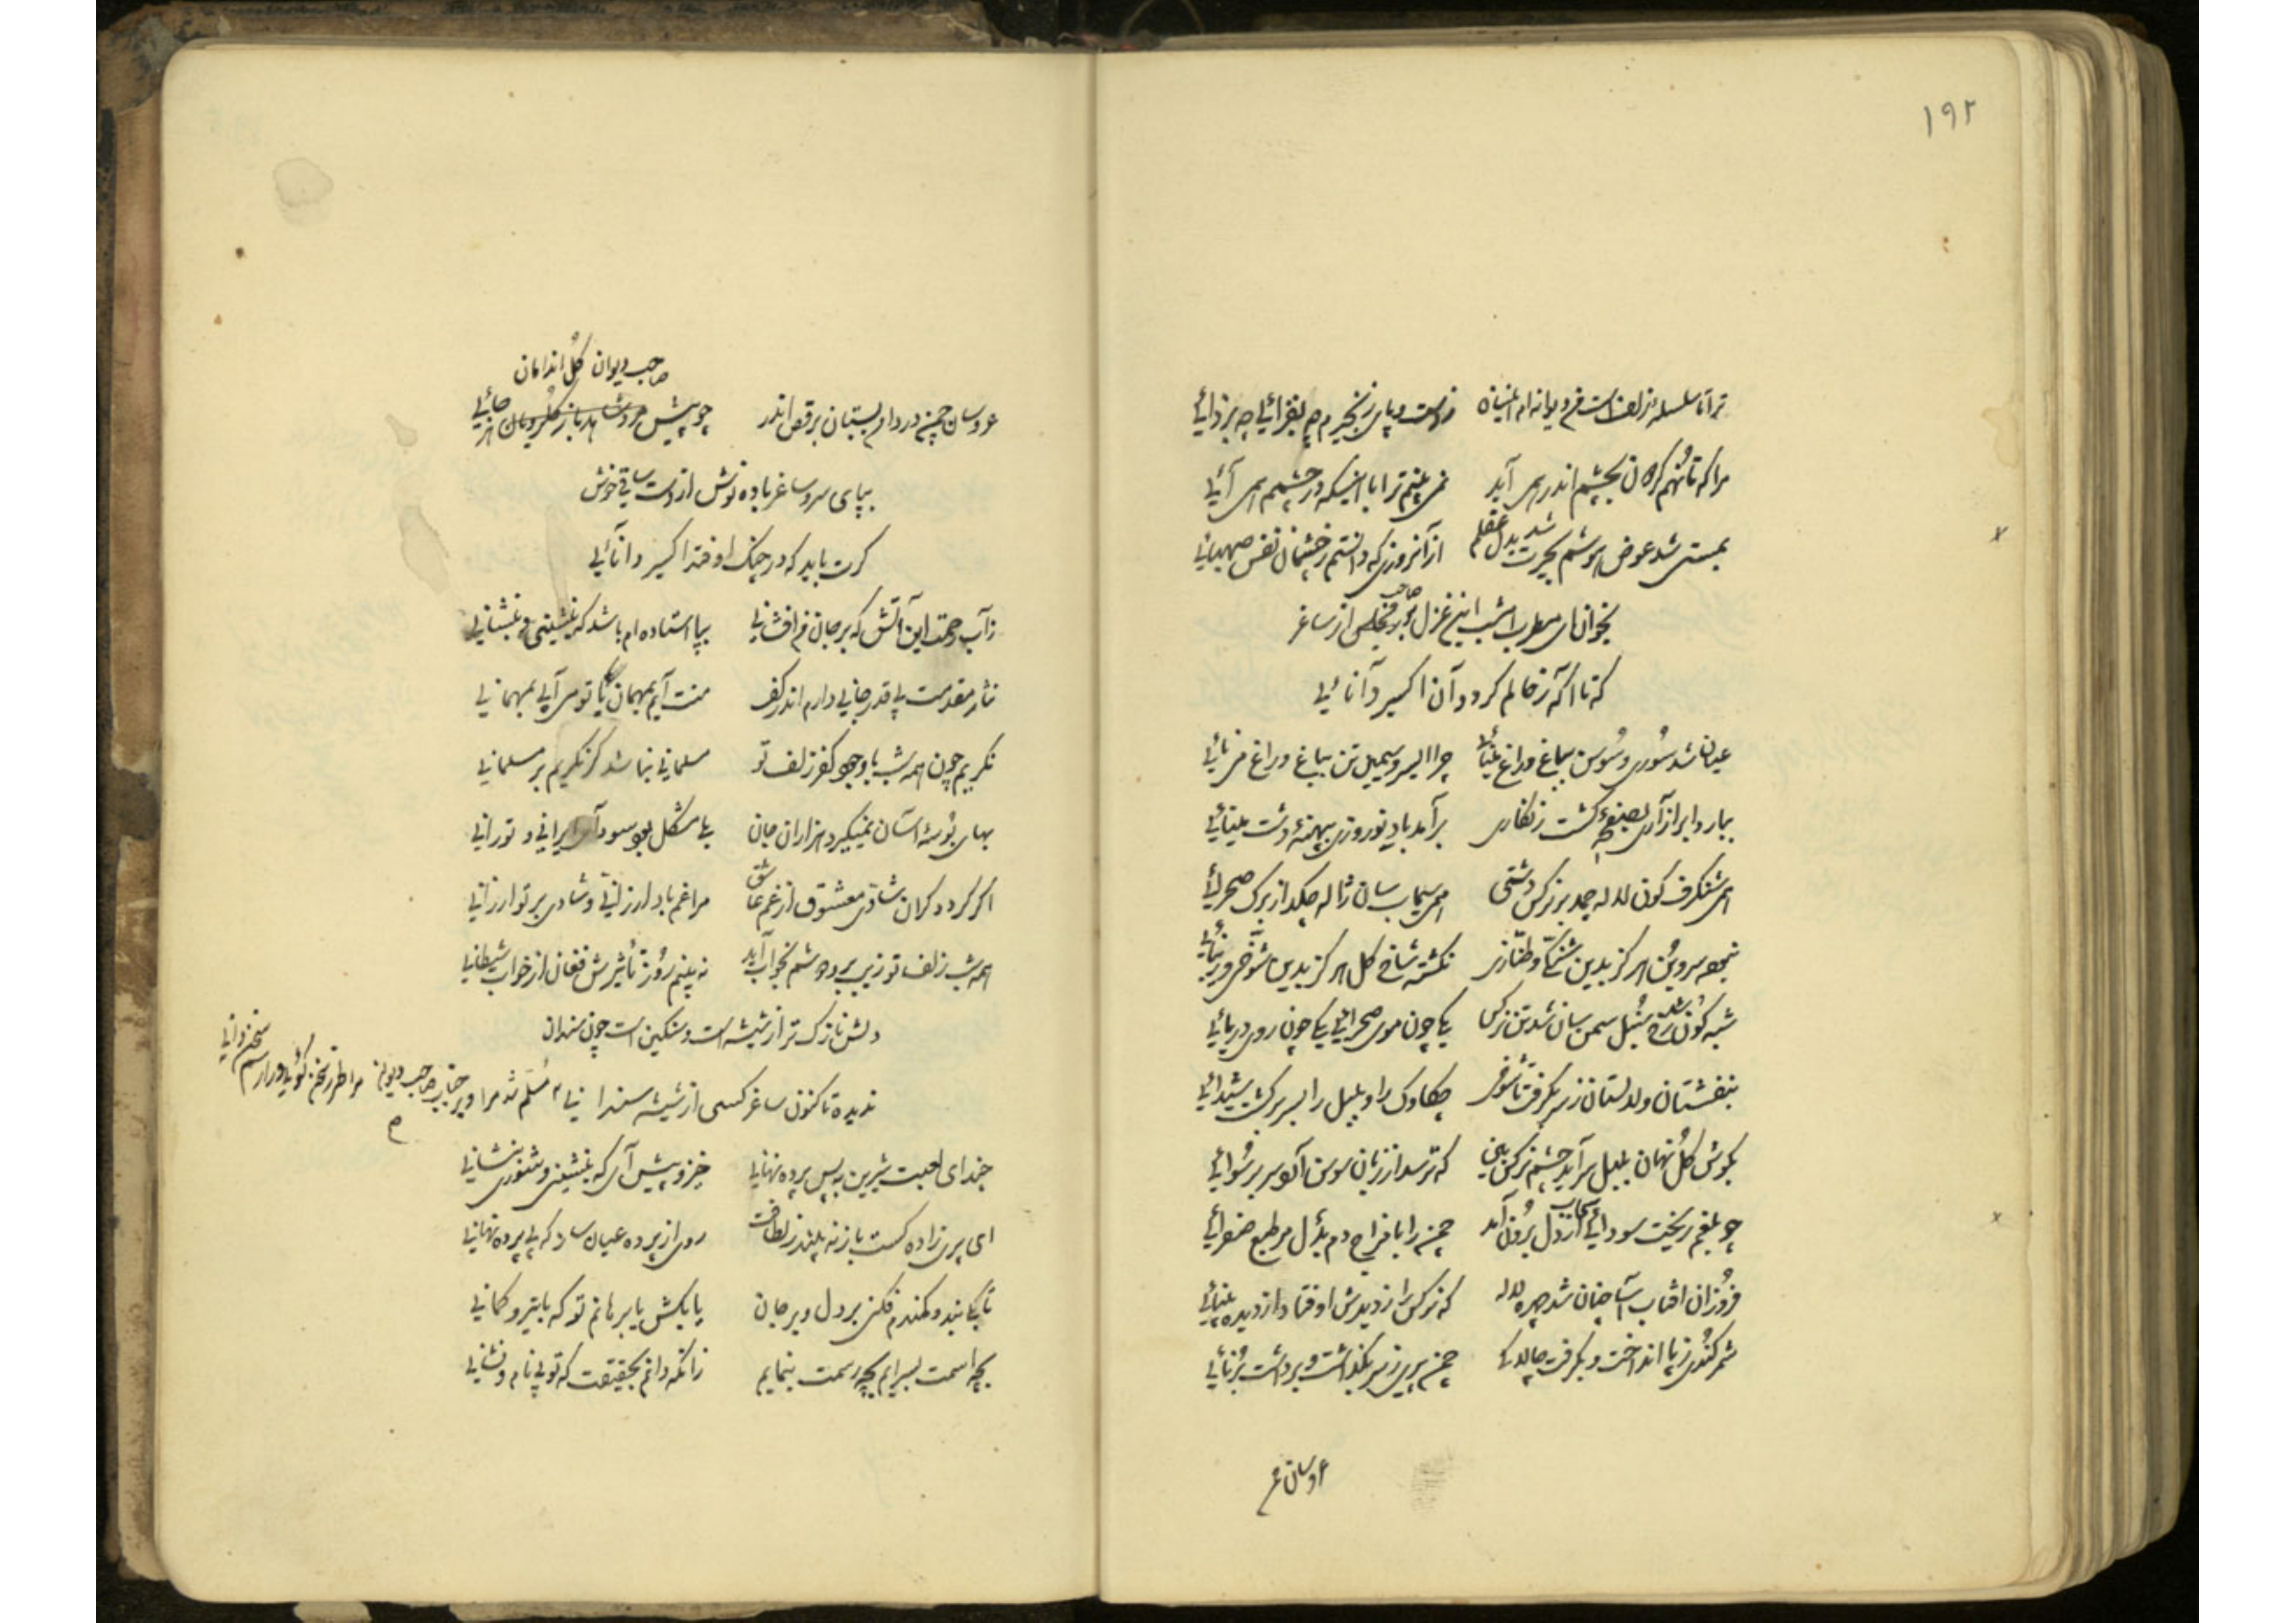 ۱۹۲
ترا تا سلسله زلف است من دیوانه ام
ز دست و پای زنجیرم چه بفزائی چه بزدائی
مرا که تا نهم مژگان بچشم اندر همی آید
نمی بینم ترا با اینکه در چشمم همی آئی
بمستی شد عوض هوشم بحیرت شد بدل عقلم
از آنروزی که دانستم ز چشمان نقش صهبائی
بخوان ای مطرب امشب این غزل در مجلس از ساغر
صاحب
که تا اکه ز حالم گردد آن اکسیر دانائی
عیان شد سوری و سوسن بباغ و راغ
چرا ای سرو سیمین تن بباغ و راغ
ببارد ابر آزاری کشت زنگاری
برآمد باد نوروزی بپهنه دشت مینائی
همی شنگرف گون لاله چمد بر نرکس دشتی
همی سیماب سان ژاله چکد از برک صحرائی
نبوده سروبن هرکز بدین شنگی و طنازی
نکشته شاخ کل هرکز بدین شوخی
شبه گون شد رخ سنبل سمن سان شد تن نرکس
یکی چون موی صحرائی یکی چون روی دریائی
بنفشستان و لالستان ز سر بگرفت تا
چکاوک را و بلبل را بسر بر گشت شیدائی
بگوش کل نهان بلبل سرآید چشم نرکس بین
که ترسد از زبان سوسن آکو سر برسوائی
چو بلغم ریخت سودائی سحاب از دل برون آمد
چمن را با مزاج دم بدل مر طبع صفرائی
فروزان افتاب آسا چنان شد چهره لاله
که نرکس را ز دیدش اوفتاد از دیده بینائی
شمر کندی ز پا انداخت و بگرفت چالاکی
چمن پیری ز سر بگذاشت و برداشت برنائی
عروسان چمن
صاحب دیوان گل اندامان
عروسان چمن در دام بستان برقص اندر
چو پیش
بپای سرو ساغر باده نوش از دست ساقی خوش
کرت باید که در چنک اوفتد اکسیر دانائی
ز آب رحمت این آتش که بر جانم افشانی
بپا استاده ام باشد که بنشینی و بنشانی
نثار مقدمت بی قدر جانی دارم اندر کف
منت آیم بمهمان یا تو می آئی بمهمانی
نگریم چون همه شب با وجود کفر زلف تو
مسلمانی نباشد گر نگریم بر مسلمانی
بهای بوسه آسان نمیگیرد هزاران جان
بسی مشکل بود سودای ایرانی و تورانی
اکر گردد گران شادی معشوق از غم عاشق
مرا غم باد ارزانی و شادی بر تو ارزانی
همه شب زلف تو زیب بر و دوشم بخواب آید
نه بینم روز تاثیرش فغان از خواب شیطانی
دلش نازک تر از شیشه است و سنگین است چون سندان
ندیده تا کنون ساغر کسی از شیشه سندانی
مسلم شد مرا و بر جناب صاحب دیوان
مرا طرز سخن گوئی و را رسم سخن دانی
چند ای لعبت شیرین به پس پرده نهانی
خیز و پیش آی که بنشینی و شوری بنشانی
ای پری زاده کست باز نه بیند ز لطافت
روی از پرده عیان ساز که بی پرده نهانی
تا بکی بند و کمندم فکنی بر دل و بر جان
یا بکش یا برهانم تو که با تیر و کمانی
بچه اسمت بسرایم بچه رسمت بنمایم
زانکه دانم بحقیقت که تو بی نام و نشانی